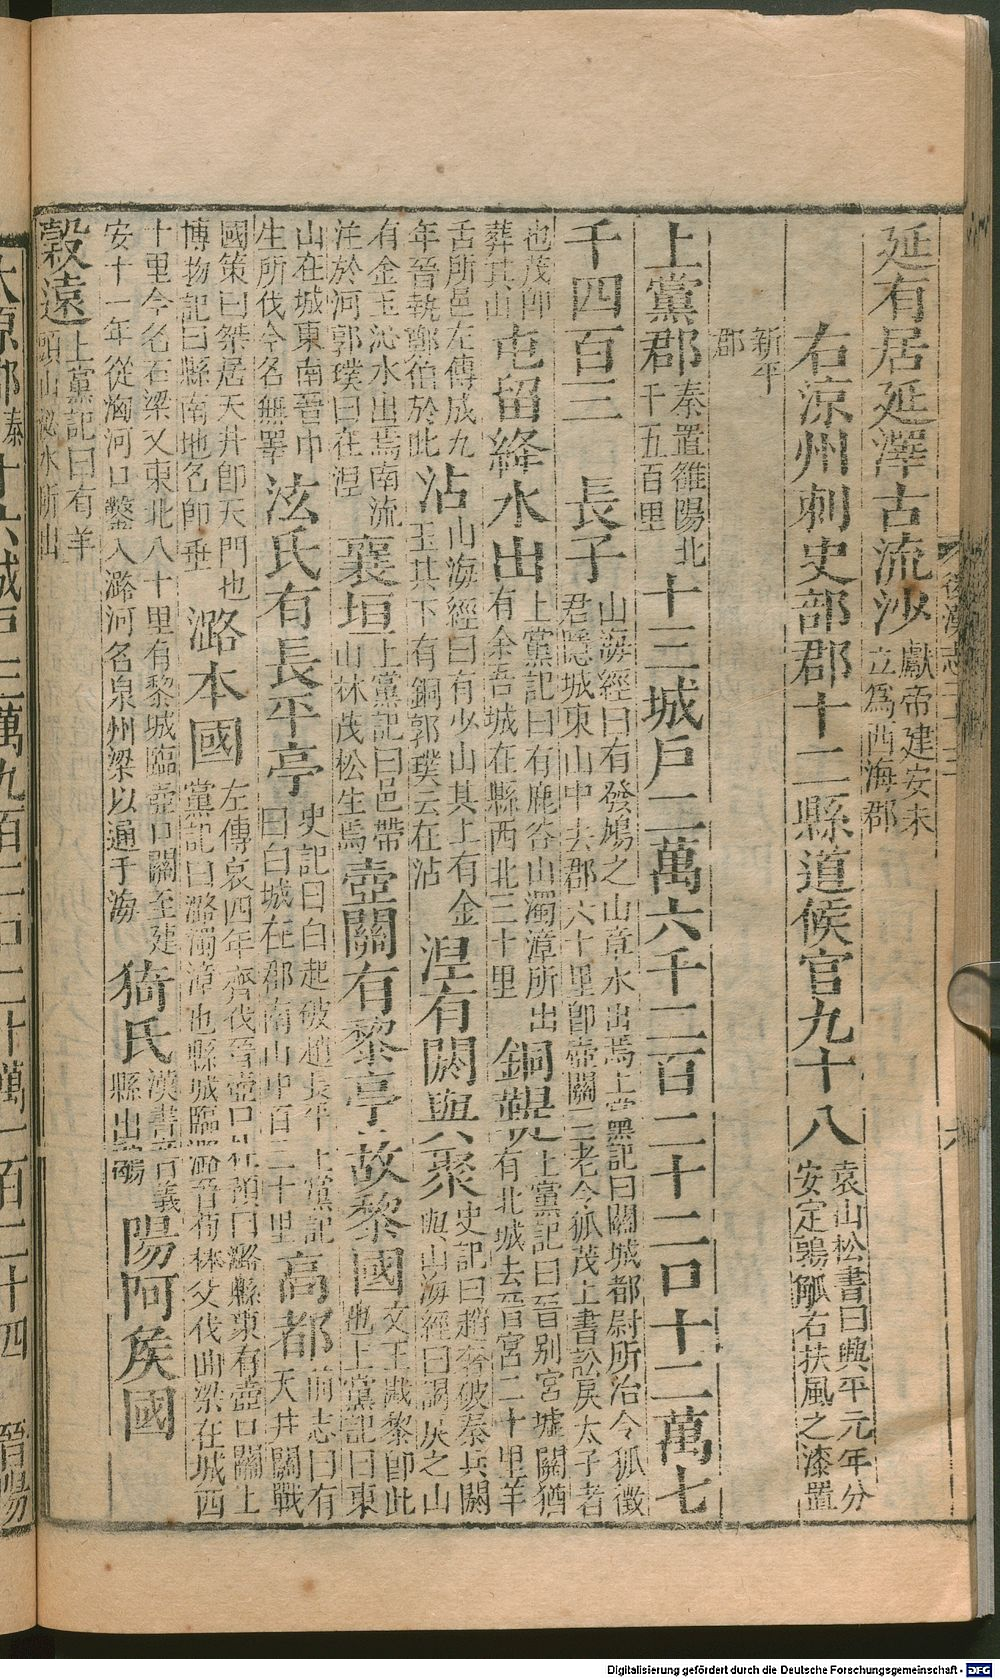 延有居延澤古流沙獻帝建安末立爲西海郡
右涼州刺史部郡十二縣道候官九十八袁山松書曰興平元年分安定鶉觚右扶風之漆置
新平郡
上黨郡秦置雒陽北千五百里十三城戶二萬六千二百二十二口十二萬七
千四百三 長子山海經曰有發鳩之山章水出焉上黨記曰關城都尉所治令狐徵君隱城東山中去郡六十里卽壺關三老令狐茂上書訟戾太子者
也茂卽葬其山屯留絳水出上黨記曰有鹿谷山濁漳所出有余吾城在縣西北三十里銅鞮上黨記曰晉别宮墟關猶有北城去晉宮二十里羊
舌所邑左傳成九年晉執鄭伯於此沾山海經曰有少山其上有金玉其下有銅郭璞云在沾涅有閼與聚史記曰趙奢破秦兵閼與山海經曰謁戾之山
有金玉沁水出焉南流注於河郭璞曰在涅襄垣上黨記曰邑帶山林茂松生焉壺關有黎亭故黎國文王戡黎卽此也上黨記曰東
山在城東南晉申生所伐今名無睪泫氏有長平亭史記曰白起破趙長平上黨記曰白城在郡南山中百二十里高都前志曰有天井關戰
國策曰桀居天井卽天門也博物記曰縣南地名卽垂潞本國左傳哀四年齊伐晉壺口杜預曰潞縣東有壺口關上黨記曰潞濁漳也縣城臨潞晉荀林父伐曲梁在城西
十里今名石梁又東北八十里有黎城臨壺口關至建安十一年從洶河口鑿入潞河名泉州梁以通于海猗氏漢書音義縣出 陽阿矦國
穀遠上黨記曰有羊頭山沁水所出
後漢志二十三
六
太原郡秦 十六城戶三萬九百二口二十萬一百二十四 晉陽
Digitalisierung gefördert durch die Deutsche Forschungsgemeinschaft - DFG